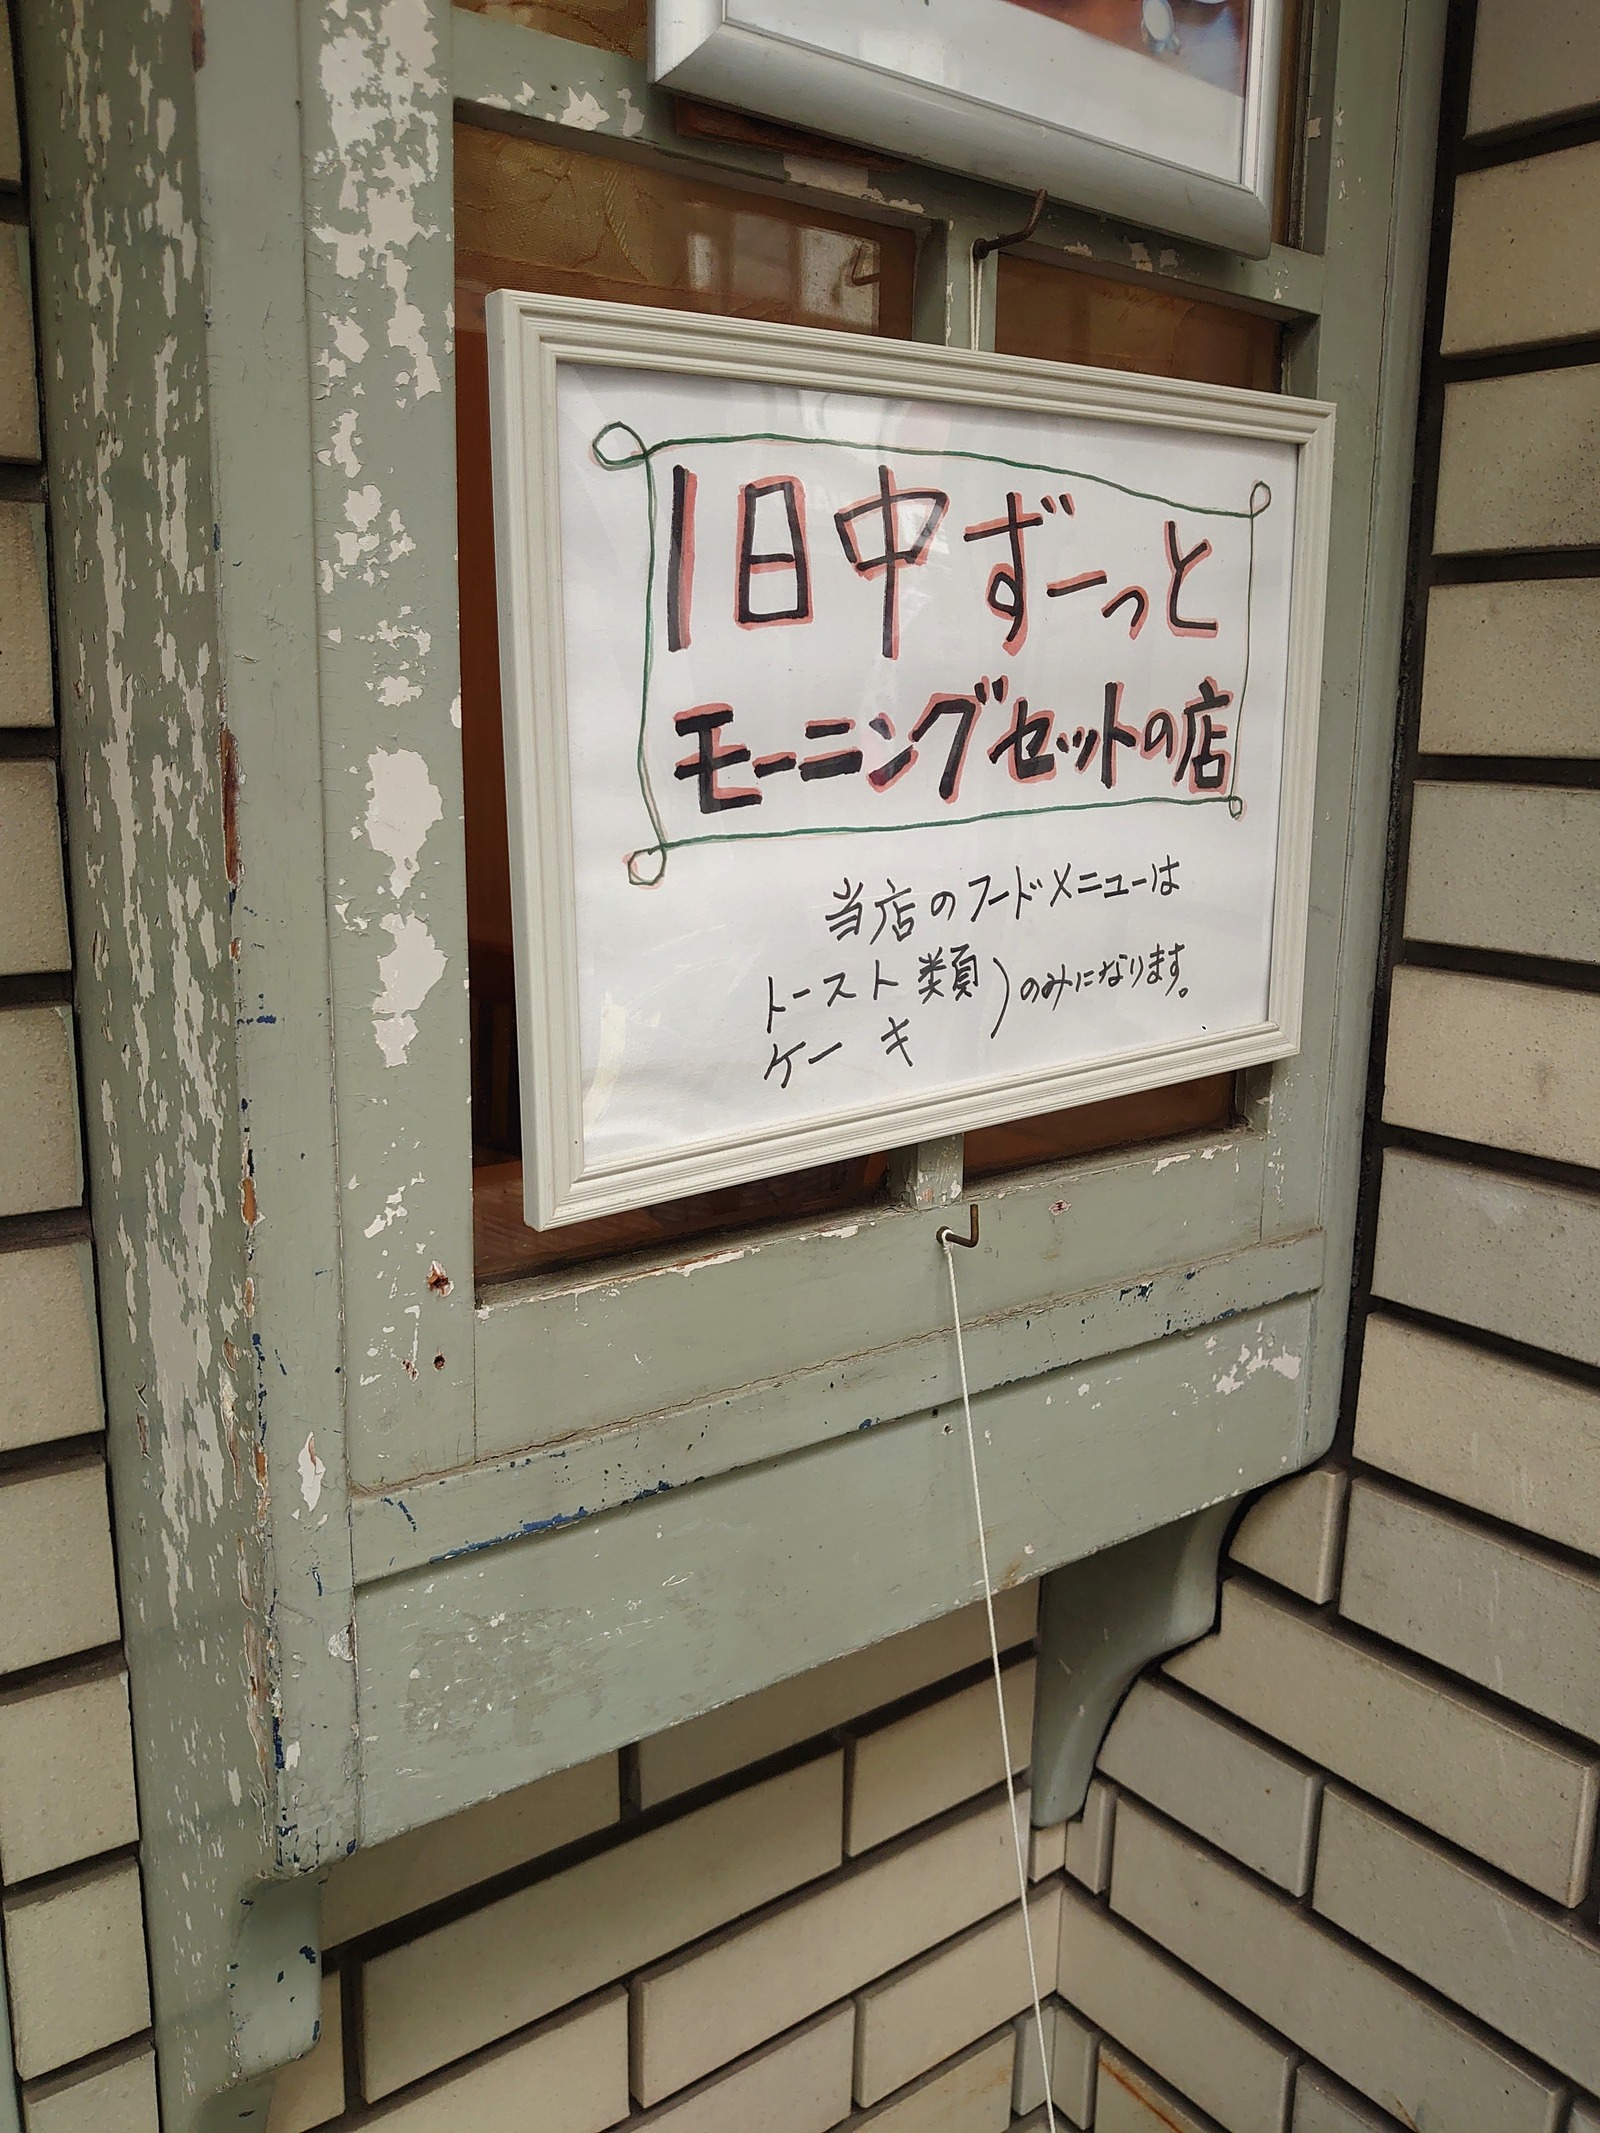 1日中ずーっと
モーニングセットの店
当店のフードメニューは
トースト類)のみになります。
ケーキ